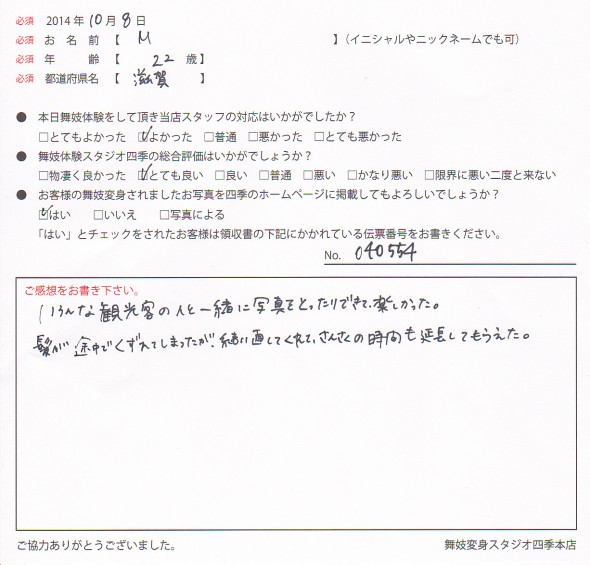 必須 2014年10月8日
必須 お名前【 M 】(イニシャルやニックネームでも可)
必須 年齢【 22 歳】
必須 都道府県名【 滋賀 】
● 本日舞妓体験をして頂き当店スタッフの対応はいかがでしたか?
□とてもよかった ☑よかった □普通 □悪かった □とても悪かった
● 舞妓体験スタジオ四季の総合評価はいかがでしょうか?
□物凄く良かった ☑とても良い □良い □普通 □悪い □かなり悪い □限界に悪い二度と来ない
● お客様の舞妓変身されましたお写真を四季のホームページに掲載してもよろしいでしょうか?
☑はい □いいえ □写真による
「はい」とチェックをされたお客様は領収書の下記にかかれている伝票番号をお書きください。
No. 040554
ご感想をお書き下さい。
いろんな観光客の人と一緒に写真をとったりできて、楽しかった。
髪が途中でくずれてしまったが、直してくれて、さんさくの時間も延長してもらえた。
ご協力ありがとうございました。
舞妓変身スタジオ四季本店